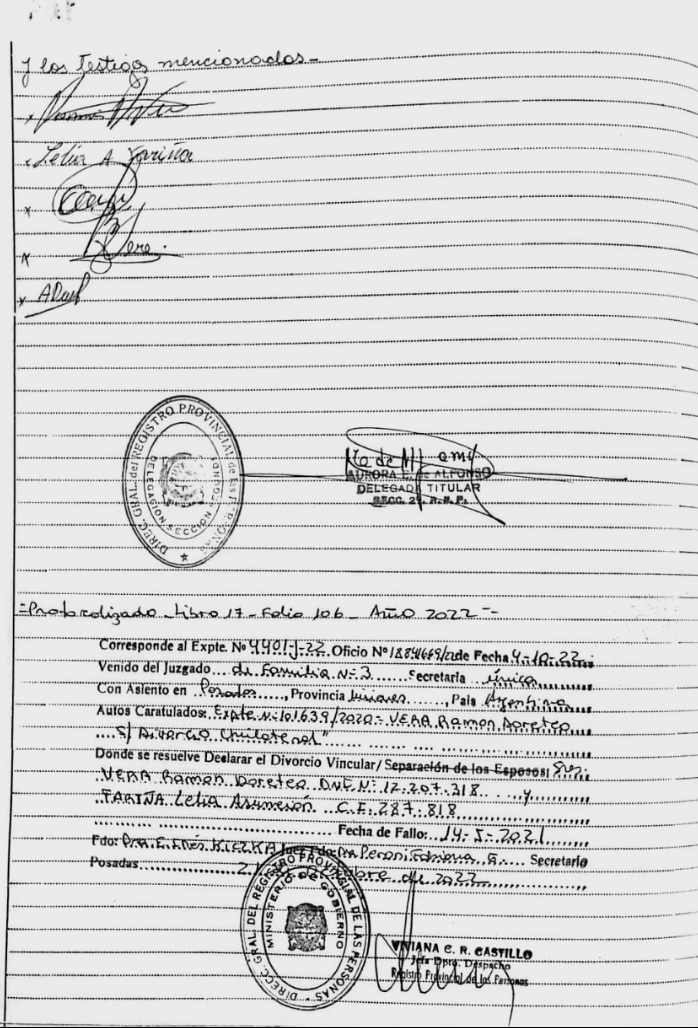 y los Testigos mencionados -
x
x Lelia A Fariña
x
x
x
DIREC. GRAL. del REGISTRO PROVINCIAL de las PERSONAS
DELEGACION SECCION SEGUNDA
AURORA E. de ALFONSO
DELEGADA TITULAR
SECC. 2ª R.P.P.
=Protocolizado - Libro 17 - Folio 106 - Año 2022 -
Corresponde al Expte. Nº 4401-J-22 Oficio Nº de Fecha 4-10-22
Venido del Juzgado de Familia Nº 3 Secretaria única
Con Asiento en Posadas, Provincia Misiones, Pais Argentina
Autos Caratulados: Expte Nº 101639/2020 - VERA Ramon Doroteo
S/ Divorcio Unilateral"
Donde se resuelve Declarar el Divorcio Vincular/ Separación de los Esposos: Sres.
VERA Ramon Doroteo DNI Nº 12.207.318 y
FARIÑA Lelia Asunción C.I. 287.818
Fecha de Fallo: 14-5-2021
Fdo: Dra. E. Inés KIELKA Juez Secretario
Posadas 2 de 2022
DIRECC. GRAL DEL REGISTRO PROVINCIAL DE LAS PERSONAS
MINISTERIO de GOBIERNO
VIVIANA C. R. CASTILLO
Jefa Dpto. Despacho
Registro Provincial de las Personas